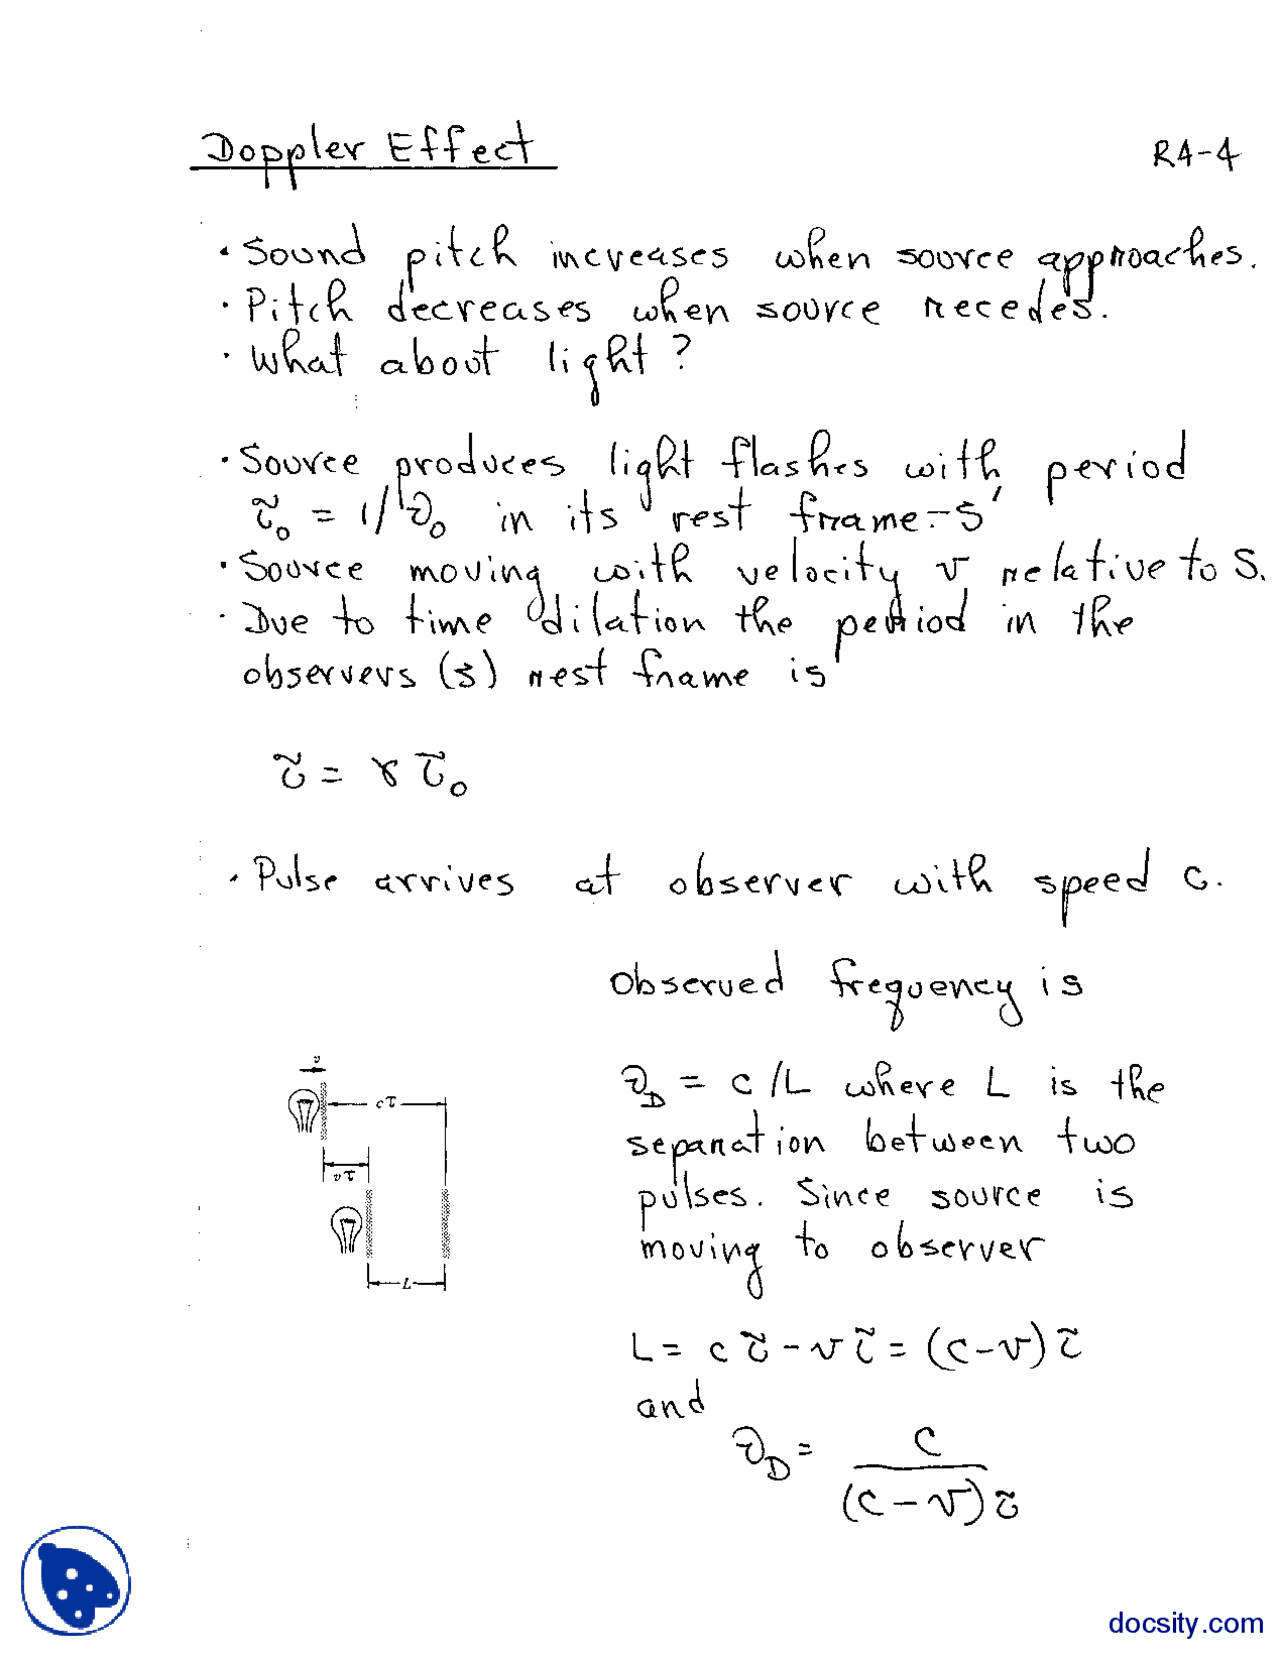 Doppler Effect
R4-4
· Sound pitch increases when source approaches.
· Pitch decreases when source recedes.
· What about light?
· Source produces light flashes with period
τ₀ = 1/ν₀ in its rest frame - S'
· Source moving with velocity v relative to S.
· Due to time dilation the period in the
observers (S) rest frame is
τ = γ τ₀
· Pulse arrives at observer with speed c.
Observed frequency is
ν_D = c/L where L is the
separation between two
pulses. Since source is
moving to observer
v
cτ
vτ
L
L = cτ - vτ = (c-v)τ
and
ν_D = c / (c-v)τ
docsity.com